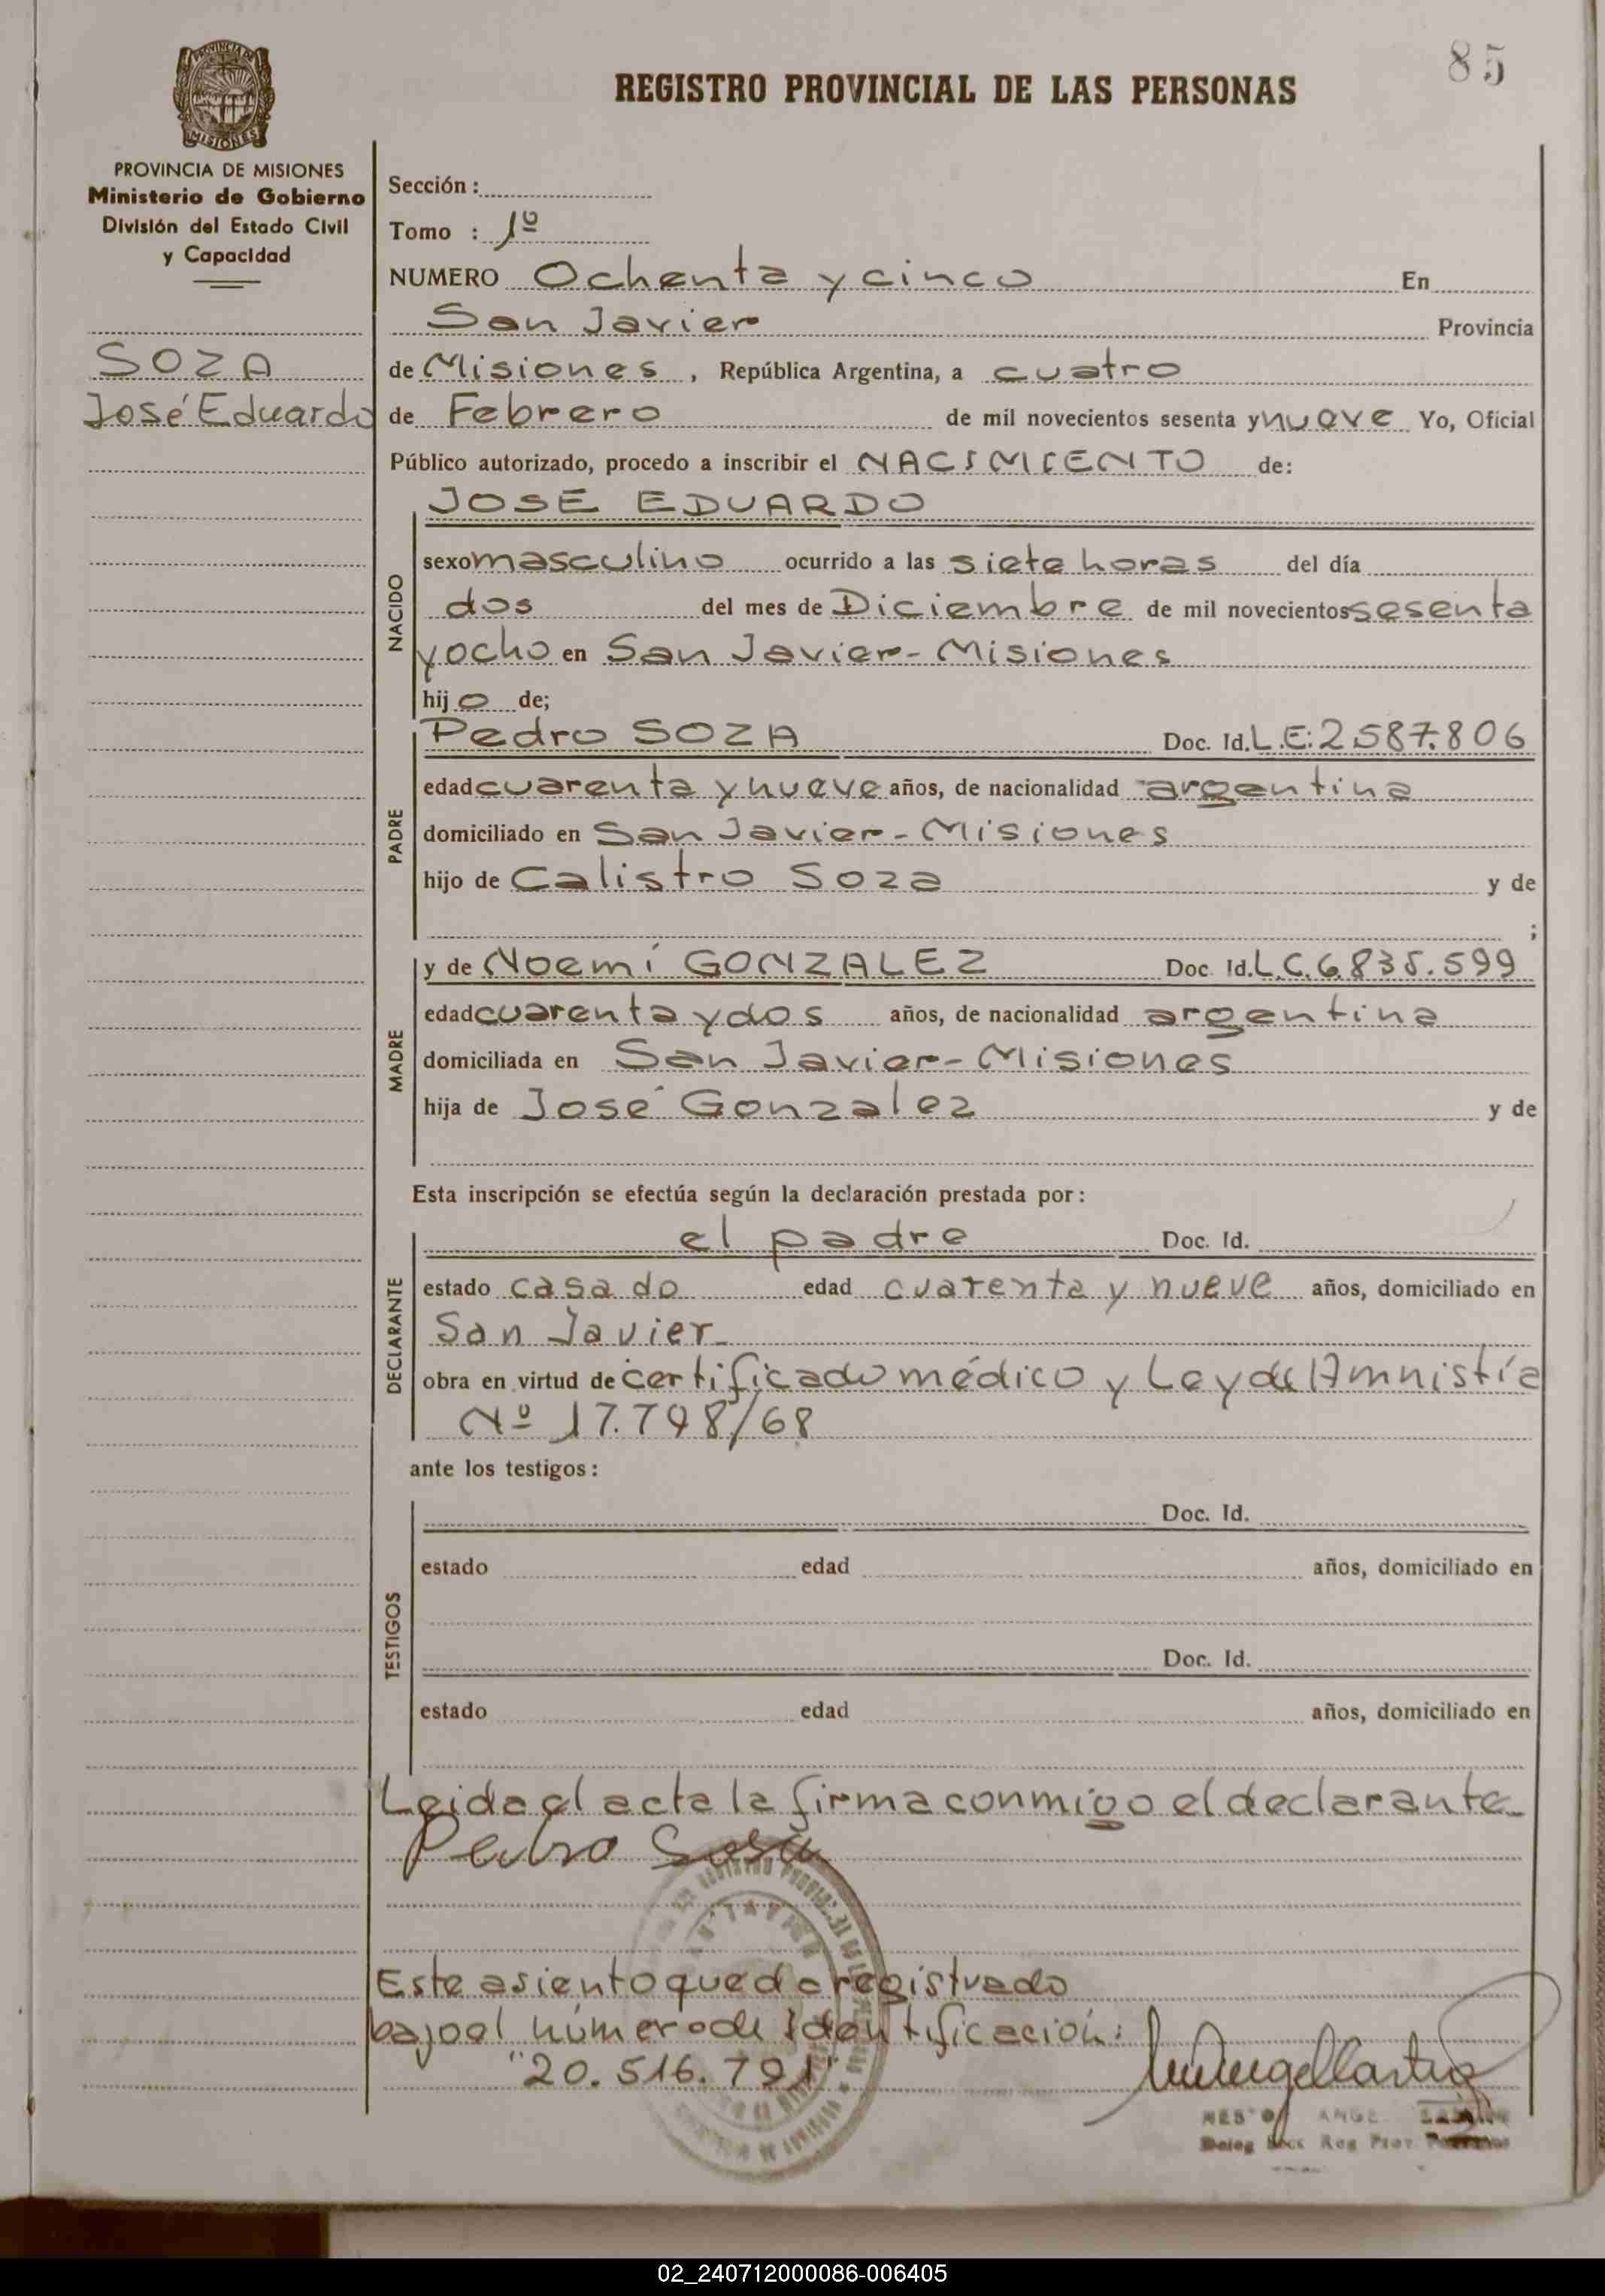 85
REGISTRO PROVINCIAL DE LAS PERSONAS
PROVINCIA DE
MISIONES
PROVINCIA DE MISIONES
Ministerio de Gobierno
División del Estado Civil
y Capacidad
SOZA
José Eduardo
Sección :
Tomo : 1º
NUMERO Ochenta y cinco En
San Javier Provincia
de Misiones , República Argentina, a cuatro
de Febrero de mil novecientos sesenta y nueve Yo, Oficial
Público autorizado, procedo a inscribir el NACIMIENTO de:
NACIDO
JOSE EDUARDO
sexo masculino ocurrido a las siete horas del día
dos del mes de Diciembre de mil novecientos sesenta
y ocho en San Javier - Misiones
hijo de;
PADRE
Pedro SOZA Doc. Id. L.E: 2587.806
edad cuarenta y nueve años, de nacionalidad argentina
domiciliado en San Javier - Misiones
hijo de Calistro Soza y de
;
MADRE
y de Noemí GONZALEZ Doc. Id. L.C. 6.835.599
edad cuarenta y dos años, de nacionalidad argentina
domiciliada en San Javier - Misiones
hija de José Gonzalez y de
Esta inscripción se efectúa según la declaración prestada por:
DECLARANTE
el padre Doc. Id.
estado casado edad cuarenta y nueve años, domiciliado en
San Javier
obra en virtud de certificado médico y Ley de Amnistía
Nº 17.798/68
ante los testigos:
TESTIGOS
Doc. Id.
estado edad años, domiciliado en
Doc. Id.
estado edad años, domiciliado en
Leida el acta la firma conmigo el declarante
Pedro Sosa
Este asiento queda registrado
bajo el número de Identificación:
"20.516.791"
02_240712000086-006405